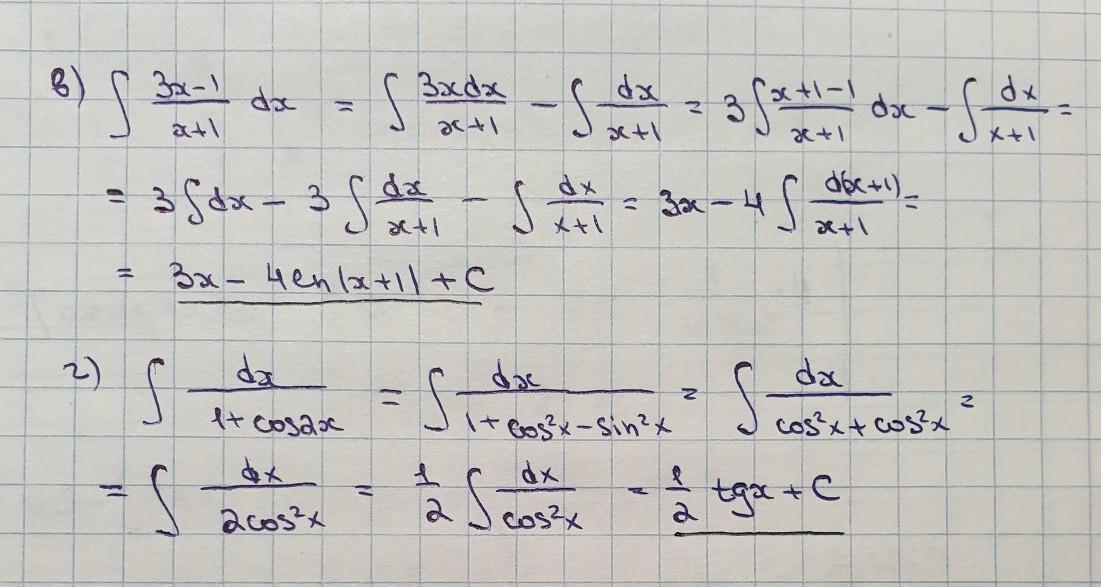 в) ∫ (3x-1)/(x+1) dx = ∫ 3xdx/(x+1) - ∫ dx/(x+1) = 3∫ (x+1-1)/(x+1) dx - ∫ dx/(x+1) =
= 3∫dx - 3∫ dx/(x+1) - ∫ dx/(x+1) = 3x - 4∫ d(x+1)/(x+1) =
= 3x - 4ln|x+1| + C
г) ∫ dx/(1+cos2x) = ∫ dx/(1+cos²x-sin²x) = ∫ dx/(cos²x+cos²x) =
= ∫ dx/(2cos²x) = 1/2 ∫ dx/(cos²x) = 1/2 tgx + C